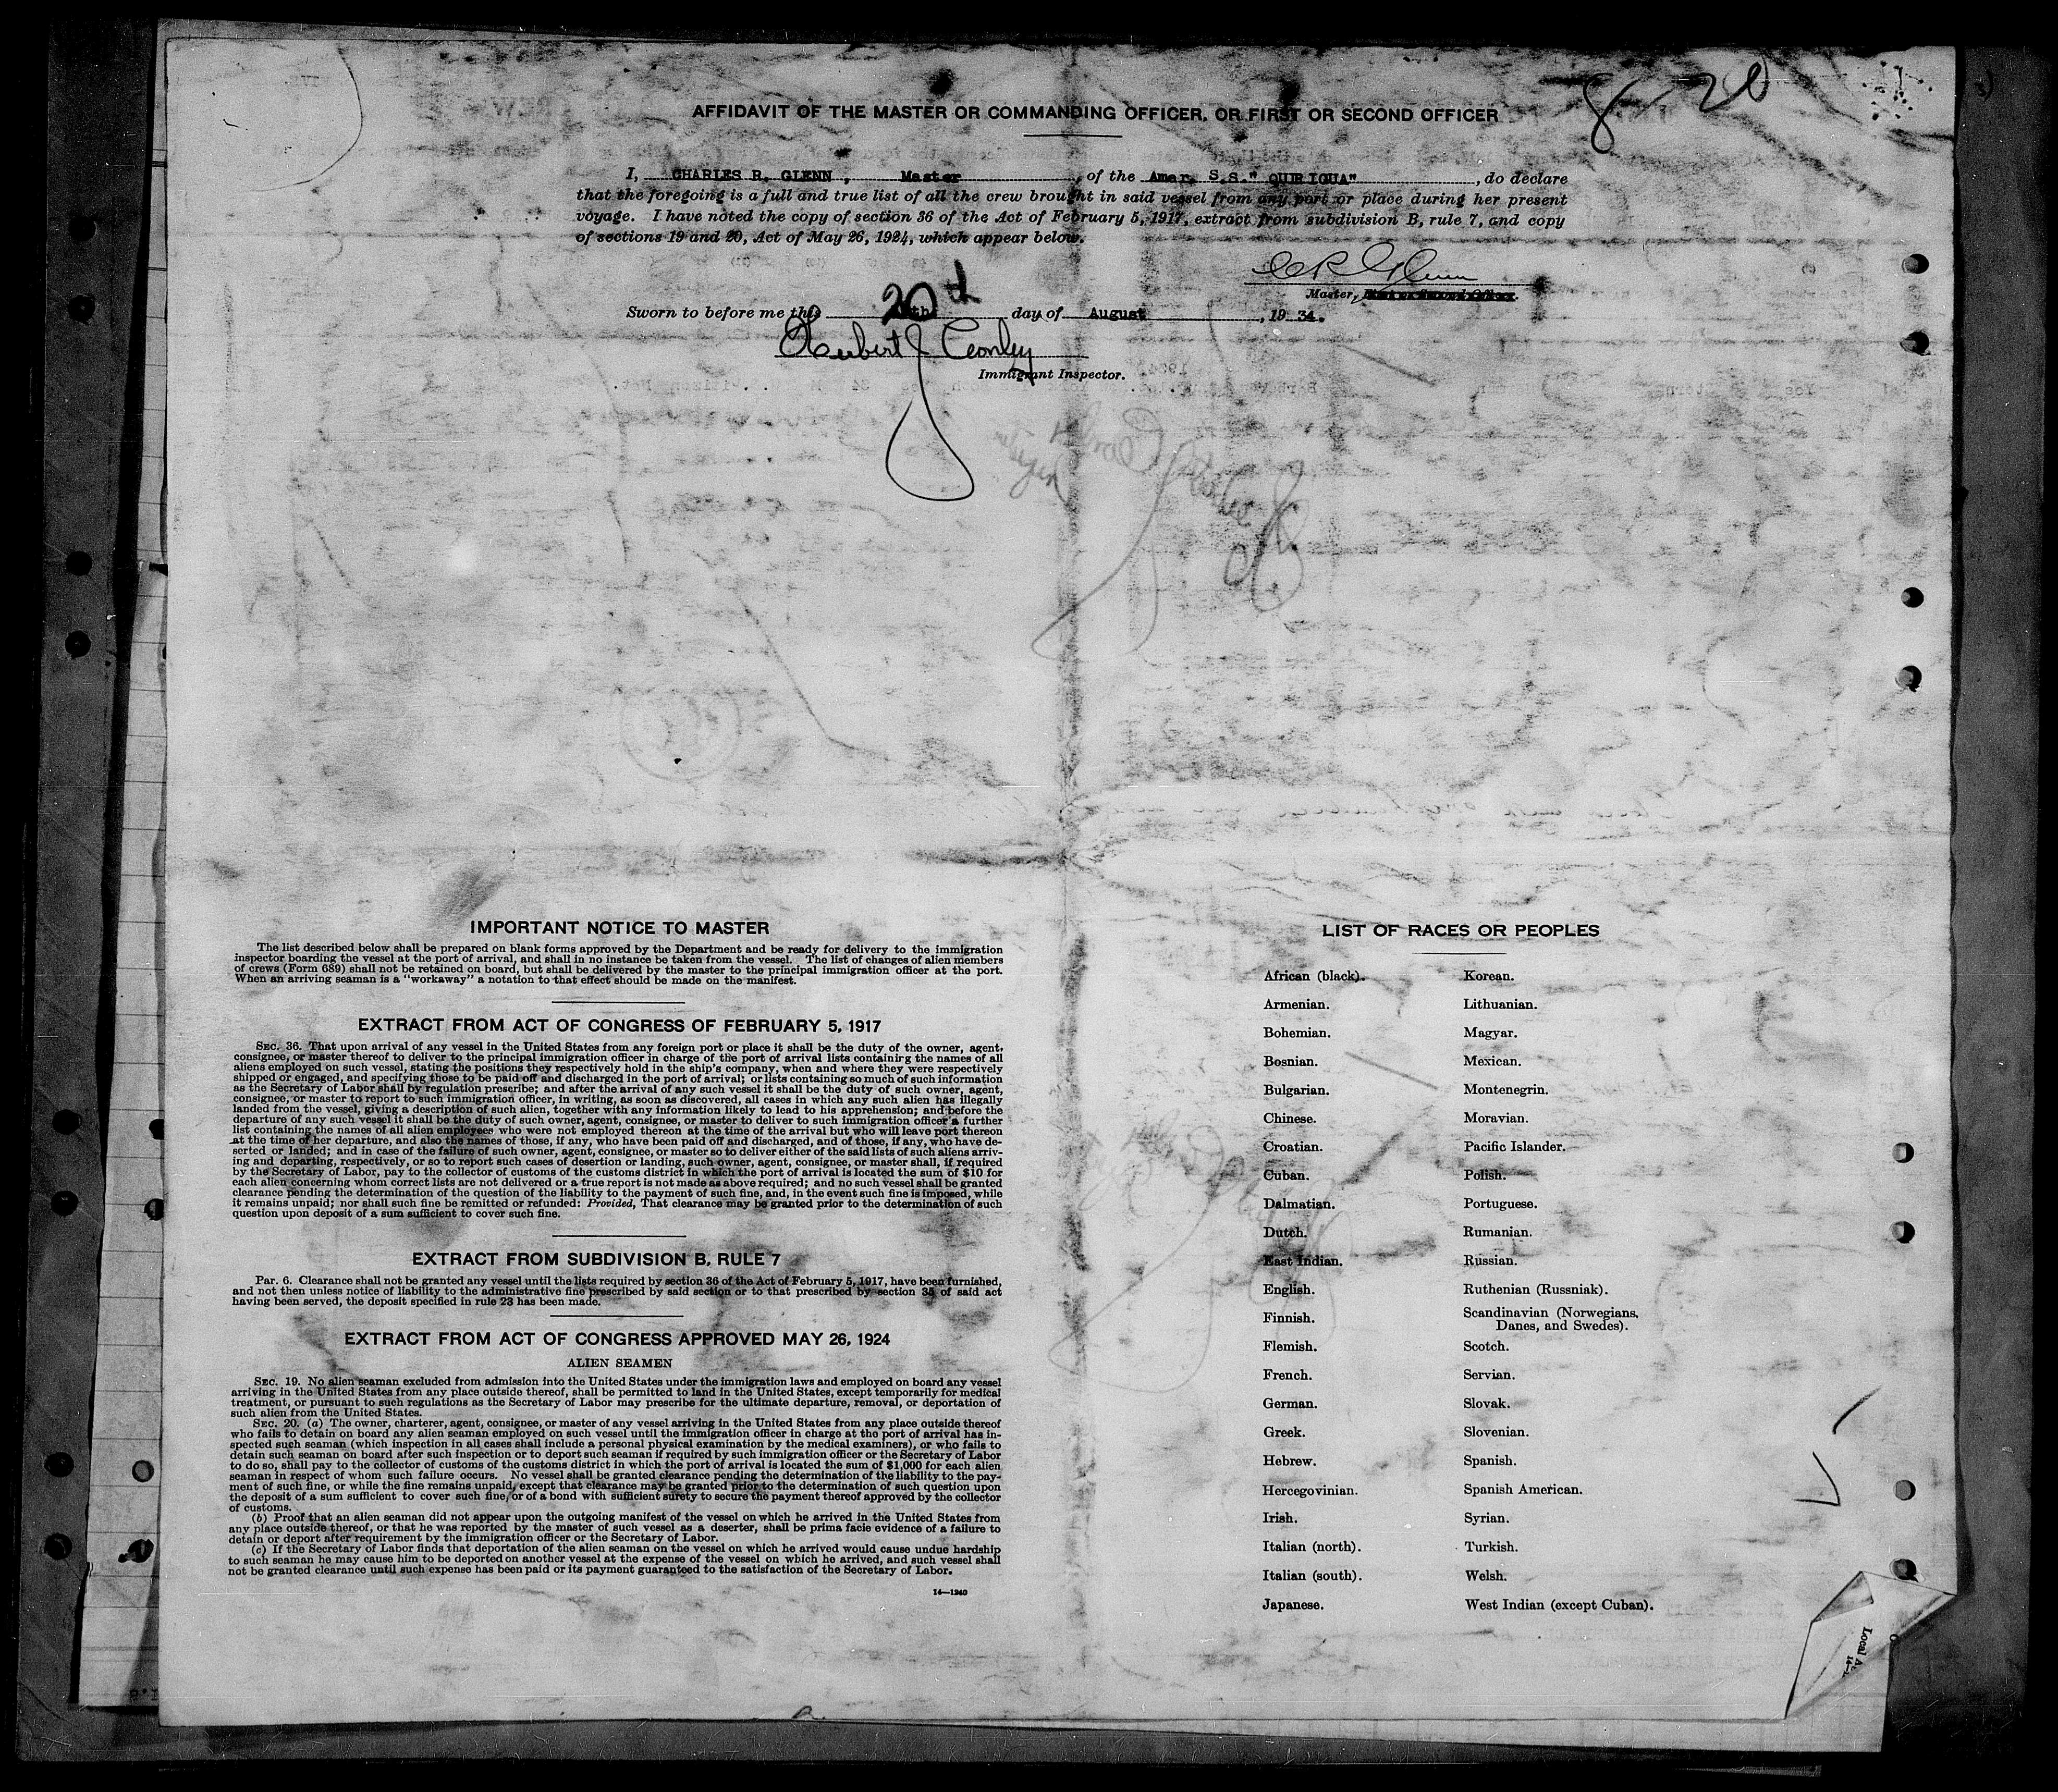 8-20
AFFIDAVIT OF THE MASTER OR COMMANDING OFFICER, OR FIRST OR SECOND OFFICER
I, CHARLES R. GLENN, Master, of the Amer. S.S." QUIRIGUA", do declare
that the foregoing is a full and true list of all the crew brought in said vessel from any port or place during her present
voyage. I have noted the copy of section 36 of the Act of February 5, 1917, extract from subdivision B, rule 7, and copy
of sections 19 and 20, Act of May 26, 1924, which appear below.
C R Glenn
Master,
Sworn to before me this 20th day of August, 1934.
Herbert J Conley
Immigrant Inspector.
IMPORTANT NOTICE TO MASTER
The list described below shall be prepared on blank forms approved by the Department and be ready for delivery to the immigration
inspector boarding the vessel at the port of arrival, and shall in no instance be taken from the vessel. The list of changes of alien members
of crews (Form 689) shall not be retained on board, but shall be delivered by the master to the principal immigration officer at the port.
When an arriving seaman is a "workaway" a notation to that effect should be made on the manifest.
EXTRACT FROM ACT OF CONGRESS OF FEBRUARY 5, 1917
SEC. 36. That upon arrival of any vessel in the United States from any foreign port or place it shall be the duty of the owner, agent,
consignee, or master thereof to deliver to the principal immigration officer in charge of the port of arrival lists containing the names of all
aliens employed on such vessel, stating the positions they respectively hold in the ship's company, when and where they were respectively
shipped or engaged, and specifying those to be paid off and discharged in the port of arrival; or lists containing so much of such information
as the Secretary of Labor shall by regulation prescribe; and after the arrival of any such vessel it shall be the duty of such owner, agent,
consignee, or master to report to such immigration officer, in writing, as soon as discovered, all cases in which any such alien has illegally
landed from the vessel, giving a description of such alien, together with any information likely to lead to his apprehension; and before the
departure of any such vessel it shall be the duty of such owner, agent, consignee, or master to deliver to such immigration officer a further
list containing the names of all alien employees who were not employed thereon at the time of the arrival but who will leave port thereon
at the time of her departure, and also the names of those, if any, who have been paid off and discharged, and of those, if any, who have de-
serted or landed; and in case of the failure of such owner, agent, consignee, or master so to deliver either of the said lists of such aliens arriv-
ing and departing, respectively, or so to report such cases of desertion or landing, such owner, agent, consignee, or master shall, if required
by the Secretary of Labor, pay to the collector of customs of the customs district in which the port of arrival is located the sum of $10 for
each alien concerning whom correct lists are not delivered or a true report is not made as above required; and no such vessel shall be granted
clearance pending the determination of the question of the liability to the payment of such fine, and, in the event such fine is imposed, while
it remains unpaid; nor shall such fine be remitted or refunded: Provided, That clearance may be granted prior to the determination of such
question upon deposit of a sum sufficient to cover such fine.
EXTRACT FROM SUBDIVISION B, RULE 7
Par. 6. Clearance shall not be granted any vessel until the lists required by section 36 of the Act of February 5, 1917, have been furnished,
and not then unless notice of liability to the administrative fine prescribed by said section or to that prescribed by section 35 of said act
having been served, the deposit specified in rule 23 has been made.
EXTRACT FROM ACT OF CONGRESS APPROVED MAY 26, 1924
ALIEN SEAMEN
SEC. 19. No alien seaman excluded from admission into the United States under the immigration laws and employed on board any vessel
arriving in the United States from any place outside thereof, shall be permitted to land in the United States, except temporarily for medical
treatment, or pursuant to such regulations as the Secretary of Labor may prescribe for the ultimate departure, removal, or deportation of
such alien from the United States.
SEC. 20. (a) The owner, charterer, agent, consignee, or master of any vessel arriving in the United States from any place outside thereof
who fails to detain on board any alien seaman employed on such vessel until the immigration officer in charge at the port of arrival has in-
spected such seaman (which inspection in all cases shall include a personal physical examination by the medical examiners), or who fails to
detain such seaman on board after such inspection or to deport such seaman if required by such immigration officer or the Secretary of Labor
to do so, shall pay to the collector of customs of the customs district in which the port of arrival is located the sum of $1,000 for each alien
seaman in respect of whom such failure occurs. No vessel shall be granted clearance pending the determination of the liability to the pay-
ment of such fine, or while the fine remains unpaid, except that clearance may be granted prior to the determination of such question upon
the deposit of a sum sufficient to cover such fine, or of a bond with sufficient surety to secure the payment thereof approved by the collector
of customs.
(b) Proof that an alien seaman did not appear upon the outgoing manifest of the vessel on which he arrived in the United States from
any place outside thereof, or that he was reported by the master of such vessel as a deserter, shall be prima facie evidence of a failure to
detain or deport after requirement by the immigration officer or the Secretary of Labor.
(c) If the Secretary of Labor finds that deportation of the alien seaman on the vessel on which he arrived would cause undue hardship
to such seaman he may cause him to be deported on another vessel at the expense of the vessel on which he arrived, and such vessel shall
not be granted clearance until such expense has been paid or its payment guaranteed to the satisfaction of the Secretary of Labor.
14—1240
LIST OF RACES OR PEOPLES
African (black).
Armenian.
Bohemian.
Bosnian.
Bulgarian.
Chinese.
Croatian.
Cuban.
Dalmatian.
Dutch.
East Indian.
English.
Finnish.
Flemish.
French.
German.
Greek.
Hebrew.
Hercegovinian.
Irish.
Italian (north).
Italian (south).
Japanese.
Korean.
Lithuanian.
Magyar.
Mexican.
Montenegrin.
Moravian.
Pacific Islander.
Polish.
Portuguese.
Rumanian.
Russian.
Ruthenian (Russniak).
Scandinavian (Norwegians,
Danes, and Swedes).
Scotch.
Servian.
Slovak.
Slovenian.
Spanish.
Spanish American.
Syrian.
Turkish.
Welsh.
West Indian (except Cuban).
Local